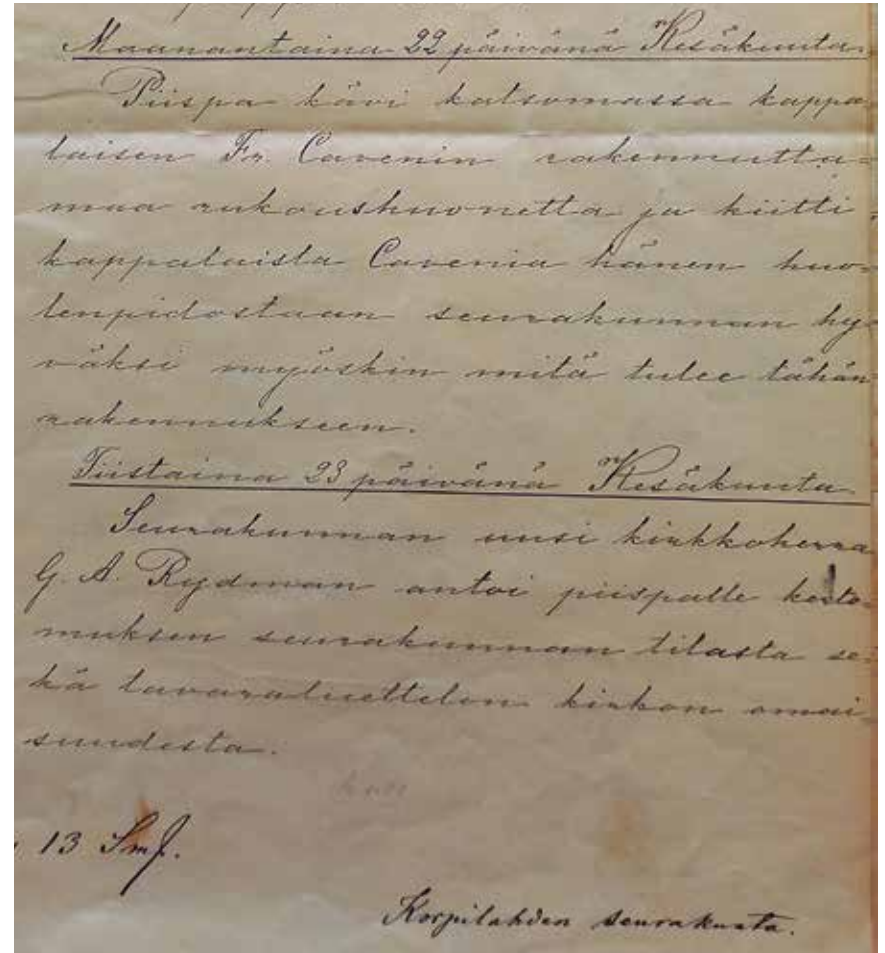 Maanantaina 22 päivänä Kesäkuuta.
Piispa kävi katsomassa kappa-
laisen Fr. Cavenin rakennutta-
maa rukoushuonetta ja kiitti
kappalaista Cavenia hänen huo-
lenpidostaan seurakunnan hy-
väksi myöskin mitä tulee tähän
rakennukseen.
Tiistaina 23 päivänä Kesäkuuta.
Seurakunnan uusi kirkkoherra
G. A. Rydman antoi piispalle kerto-
muksen seurakunnan tilasta se-
kä tavaraluettelon kirkon omai
suudesta.
13 Smf.
Korpilahden seurakunta.